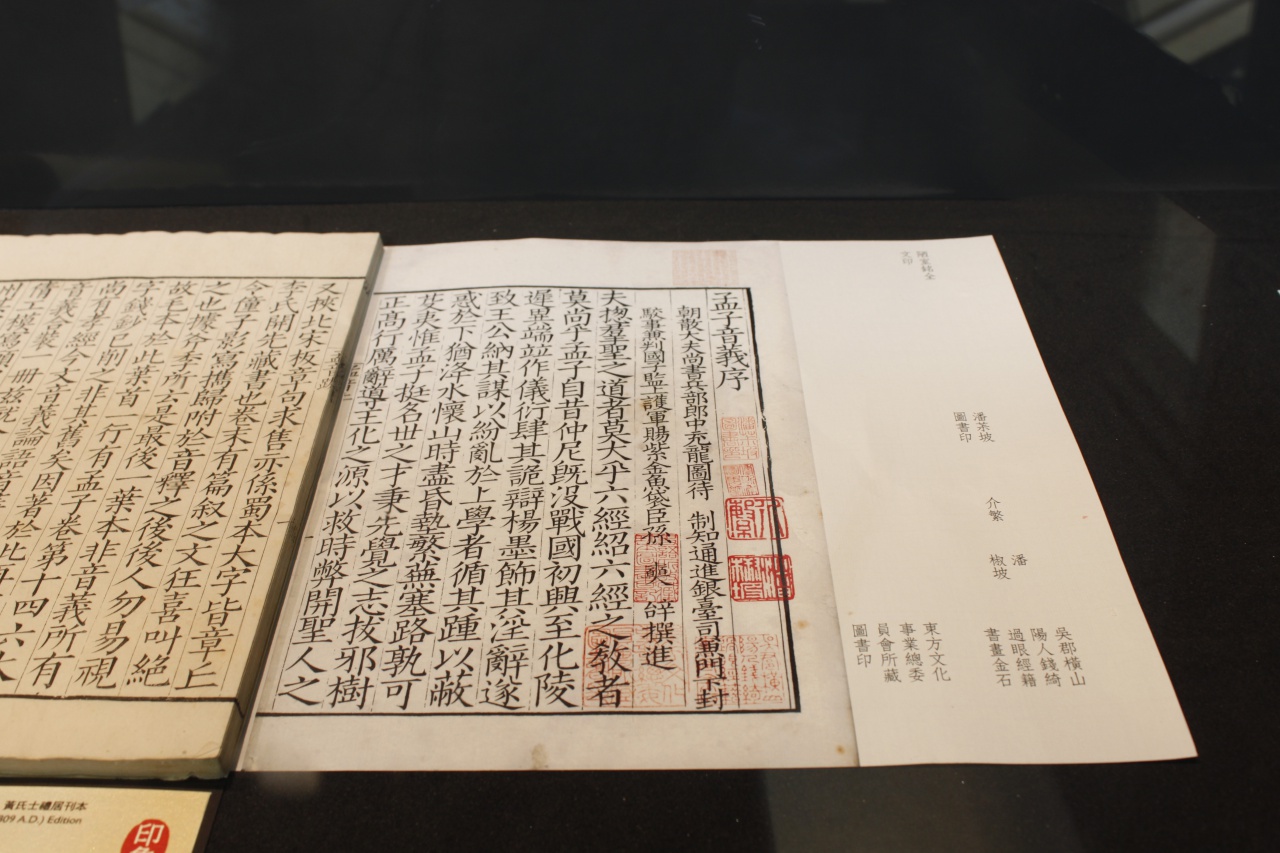 孟子音義序
朝散大夫尚書兵部郎中充龍圖待 制知通進銀臺司兼門下封
駁事兼判國子監上護軍賜紫金魚袋臣孫 奭 撰進
夫揔羣聖之道者莫大乎六經紹六經之敎者
莫尚乎孟子自昔仲尼旣沒戰國初興至化陵
遲異端竝作儀衍肆其詭辯楊墨飾其淫辭遂
致王公納其謀以紛亂於上學者循其踵以蔽
惑於下猶洚水懷山時盡昏墊繁蕪塞路孰可
芟夷惟孟子挺名世之才秉先覺之志拔邪樹
正高行厲辭導王化之源以救時弊開聖人之
又挾北宋板章句求售亦係蜀本大字皆章上
李氏開先藏書也卷末有篇叙之文狂喜叫絕
令僮子影寫攜歸附於音釋之後後人勿易視
之也據斧季所云是最後一葉本非音義所有
故毛本於此葉首一行有孟子卷第十四六大
字錢鈔已削之非其舊矣因著於此
尚有孝經今文音義論語音義
音義各一冊
潘茶坡
圖書印
介繁
潘
椒坡
吳郡橫山
陽人錢綺
過眼經籍
書畫金石
東方文化
事業總委
員會所藏
圖書印
黃氏士禮居刊本
809 A.D.) Edition
印